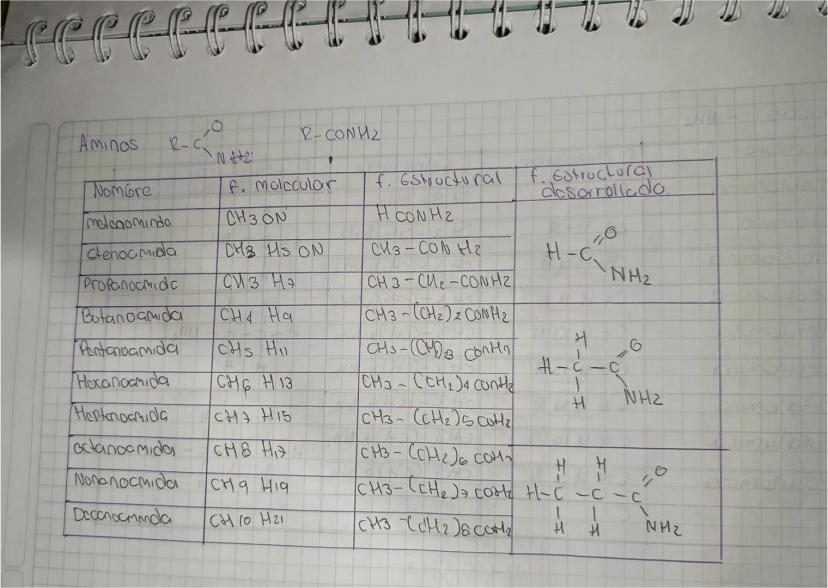 Aminos R-C O NH2 R-CONH2
Nombre f. molecular f. Estructural f. Estructural desarrollada
metanoamida CH3ON HCONH2
Etanoamida CH3 H5 ON CH3-CONH2
Propanoamida CH3 H7 CH3-CH2-CONH2
H-C O NH2
Butanoamida CH4 H9 CH3-(CH2)2CONH2
Pentanoamida CH5 H11
Hexanoamida CH6 H13 CH3-(CH2)4CONH2
H
H-C-C O
H NH2
Heptanoamida CH7 H15 CH3-(CH2)5COH2
octanoamida CH8 H17 CH3-(CH2)6
Nonanoamida CH9 H19 CH3-(CH2)7
Decanoamida CH10 H21 CH3-(CH2)8
H H
H-C-C-C O
H H NH2